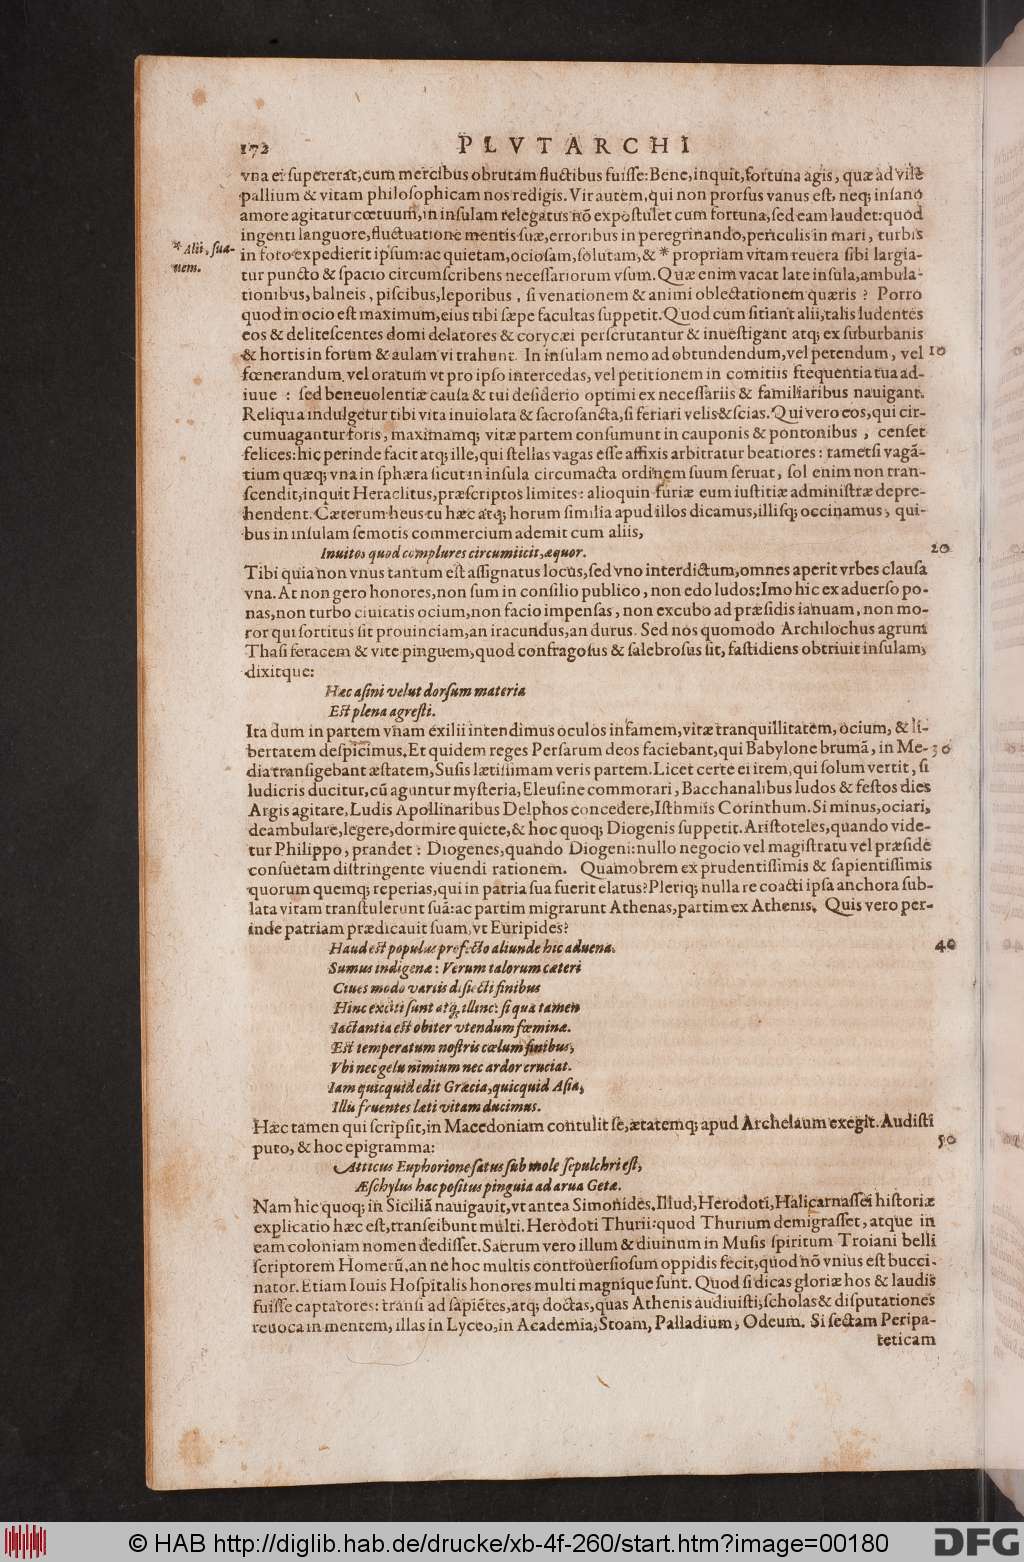 172 PLVTARCHI
vna ei supererat, cum mercibus obrutam fluctibus fuisse: Bene, inquit, fortuna agis, quæ ad vile
pallium & vitam philosophicam nos redigis. Vir autem, qui non prorsus vanus est, neq; insano
amore agitatur cœtuum, in insulam relegatus nõ expostulet cum fortuna, sed eam laudet: quod
ingenti languore, fluctuatione mentis suæ, erroribus in peregrinando, periculis in mari, turbis
* Alii, sua-
uem.
in foro expedierit ipsum: ac quietam, ociosam, solutam, & * propriam vitam reuera sibi largia-
tur puncto & spacio circumscribens necessariorum vsum. Quæ enim vacat late insula, ambula-
tionibus, balneis, piscibus, leporibus, si venationem & animi oblectationem quæris? Porro
quod in ocio est maximum, eius tibi sæpe facultas suppetit. Quod cum sitiant alii, talis ludentes
eos & delitescentes domi delatores & corycæi perscrutantur & inuestigant atq; ex suburbanis
& hortis in forum & aulam vi trahunt. In insulam nemo ad obtundendum, vel petendum, vel 10
fœnerandum, vel oratum vt pro ipso intercedas, vel petitionem in comitiis frequentia tua ad-
iuue: sed beneuolentiæ causa & tui desiderio optimi ex necessariis & familiaribus nauigant.
Reliqua indulgetur tibi vita inuiolata & sacrosancta, si feriari velis & scias. Qui vero eos, qui cir-
cumuagantur foris, maximamq; vitæ partem consumunt in cauponis & pontonibus, censet
felices: hic perinde facit atq; ille, qui stellas vagas esse affixis arbitratur beatiores: tametsi vagã-
tium quæq; vna in sphæra sicut in insula circumacta ordinem suum seruat, sol enim non tran-
scendit, inquit Heraclitus, præscriptos limites: alioquin furiæ eum iustitiæ administræ depre-
hendent. Cæterum heus tu hæc atq; horum similia apud illos dicamus, illisq; occinamus, qui-
bus in insulam semotis commercium ademit cum aliis,
Inuitos quod complures circumiicit, æquor. 20
Tibi quia non vnus tantum est assignatus locus, sed vno interdictum, omnes aperit vrbes clausa
vna. At non gero honores, non sum in consilio publico, non edo ludos: Imo hic ex aduerso po-
nas, non turbo ciuitatis ocium, non facio impensas, non excubo ad præsidis ianuam, non mo-
ror qui sortitus sit prouinciam, an iracundus, an durus. Sed nos quomodo Archilochus agrum
Thasi feracem & vite pinguem, quod confragosus & salebrosus sit, fastidiens obtriuit insulam,
dixitque:
Hæc asini velut dorsum materia
Est plena agresti.
Ita dum in partem vnam exilii intendimus oculos infamem, vitæ tranquillitatem, ocium, & li-
bertatem despicimus. Et quidem reges Persarum deos faciebant, qui Babylone brumã, in Me- 30
dia transigebant æstatem, Susis lætissimam veris partem. Licet certe ei item, qui solum vertit, si
ludicris ducitur, cũ aguntur mysteria, Eleusine commorari, Bacchanalibus ludos & festos dies
Argis agitare, Ludis Apollinaribus Delphos concedere, Isthmiis Corinthum. Si minus, ociari,
deambulare, legere, dormire quiete, & hoc quoq; Diogenis suppetit. Aristoteles, quando vide-
tur Philippo, prandet: Diogenes, quando Diogeni: nullo negocio vel magistratu vel præside
consuetam distringente viuendi rationem. Quamobrem ex prudentissimis & sapientissimis
quorum quemq; reperias, qui in patria sua fuerit elatus? Pleriq; nulla re coacti ipsa anchora sub-
lata vitam transtulerunt suã: ac partim migrarunt Athenas, partim ex Athenis. Quis vero per-
inde patriam prædicauit suam, vt Euripides?
Haud est populus profecto aliunde hic aduena. 40
Sumus indigenæ: Verum talorum cæteri
Ciues modo variis disiecti finibus
Hinc exciti sunt atq; illinc: si qua tamen
Iactantia est obiter vtendum fœmina.
Est temperatum nostris cœlum finibus,
Vbi nec gelu nimium nec ardor cruciat.
Iam quicquid edit Græcia, quicquid Asia,
Illis fruentes læti vitam ducimus.
Hæc tamen qui scripsit, in Macedoniam contulit se, ætatemq; apud Archelaum exegit. Audisti
puto, & hoc epigramma: 50
Atticus Euphorione satus sub mole sepulchri est,
Æschylus hac positus pinguia ad arua Getæ.
Nam hic quoq; in Siciliã nauigauit, vt antea Simonides. Illud, Herodoti, Halicarnassei historiæ
explicatio hæc est, transcibunt multi. Herodoti Thurii: quod Thurium demigrasset, atque in
eam coloniam nomen dedisset. Sacrum vero illum & diuinum in Musis spiritum Troiani belli
scriptorem Homerũ, an ne hoc multis controuersiosum oppidis fecit, quod nõ vnius est bucci-
nator. Etiam Iouis Hospitalis honores multi magnique sunt. Quod si dicas gloriæ hos & laudis
fuisse captatores: transi ad sapiẽtes, atq; doctas, quas Athenis audiuisti, scholas & disputationes
reuoca in mentem, illas in Lyceo, in Academia, Stoam, Palladium, Odeum. Si sectam Peripa-
teticam
© HAB http://diglib.hab.de/drucke/xb-4f-260/start.htm?image=00180 DFG